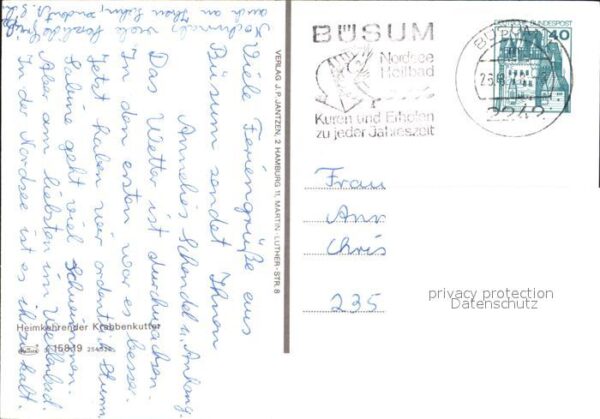 Viele Feriengrüße aus
Büsum sendet Ihnen
Annelies Schendel u. Anhang.
Das Wetter ist durchwachsen.
In den ersten war es besser.
Jetzt haben wir ordentlich Sturm
Sabine geht viel Schwimmen.
Aber am liebsten im Wellenbad.
In der Nordsee ist es ihr zu kalt.
Nochmals viele herzliche Grüße
auch an Ihren Sohn, sendet A. S.
VERLAG J. P. JANTZEN, 2 HAMBURG 11, MARTIN-LUTHER-STR. 8
Heimkehrender Krabbenkutter
15819
BÜSUM
Nordsee
Heilbad
Kuren und Erholen
zu jeder Jahreszeit
BÜSUM
2242
DEUTSCHE BUNDESPOST
40
Frau
Ann
Chris
235
privacy protection
Datenschutz